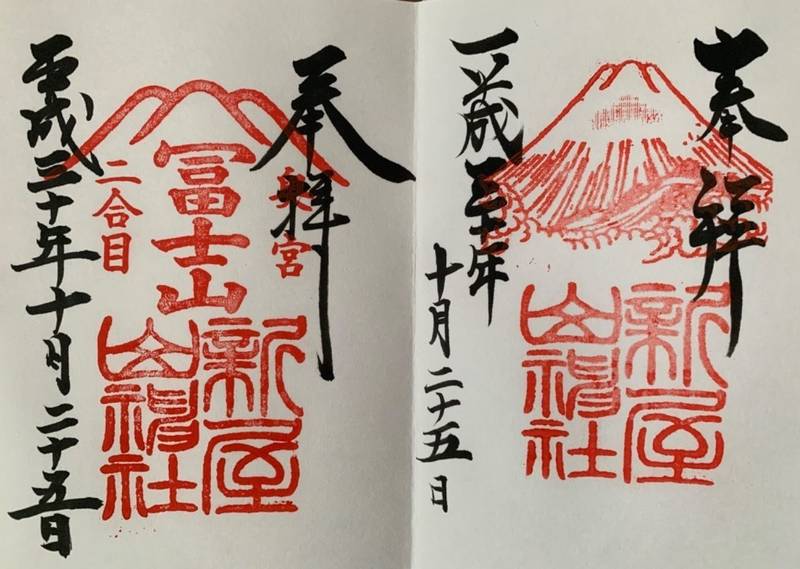 奉拝
新屋
山神社
平成三十年
十月二十五日
奉拝
奥宮
冨士山
二合目
新屋
山神社
平成三十年十月二十五日